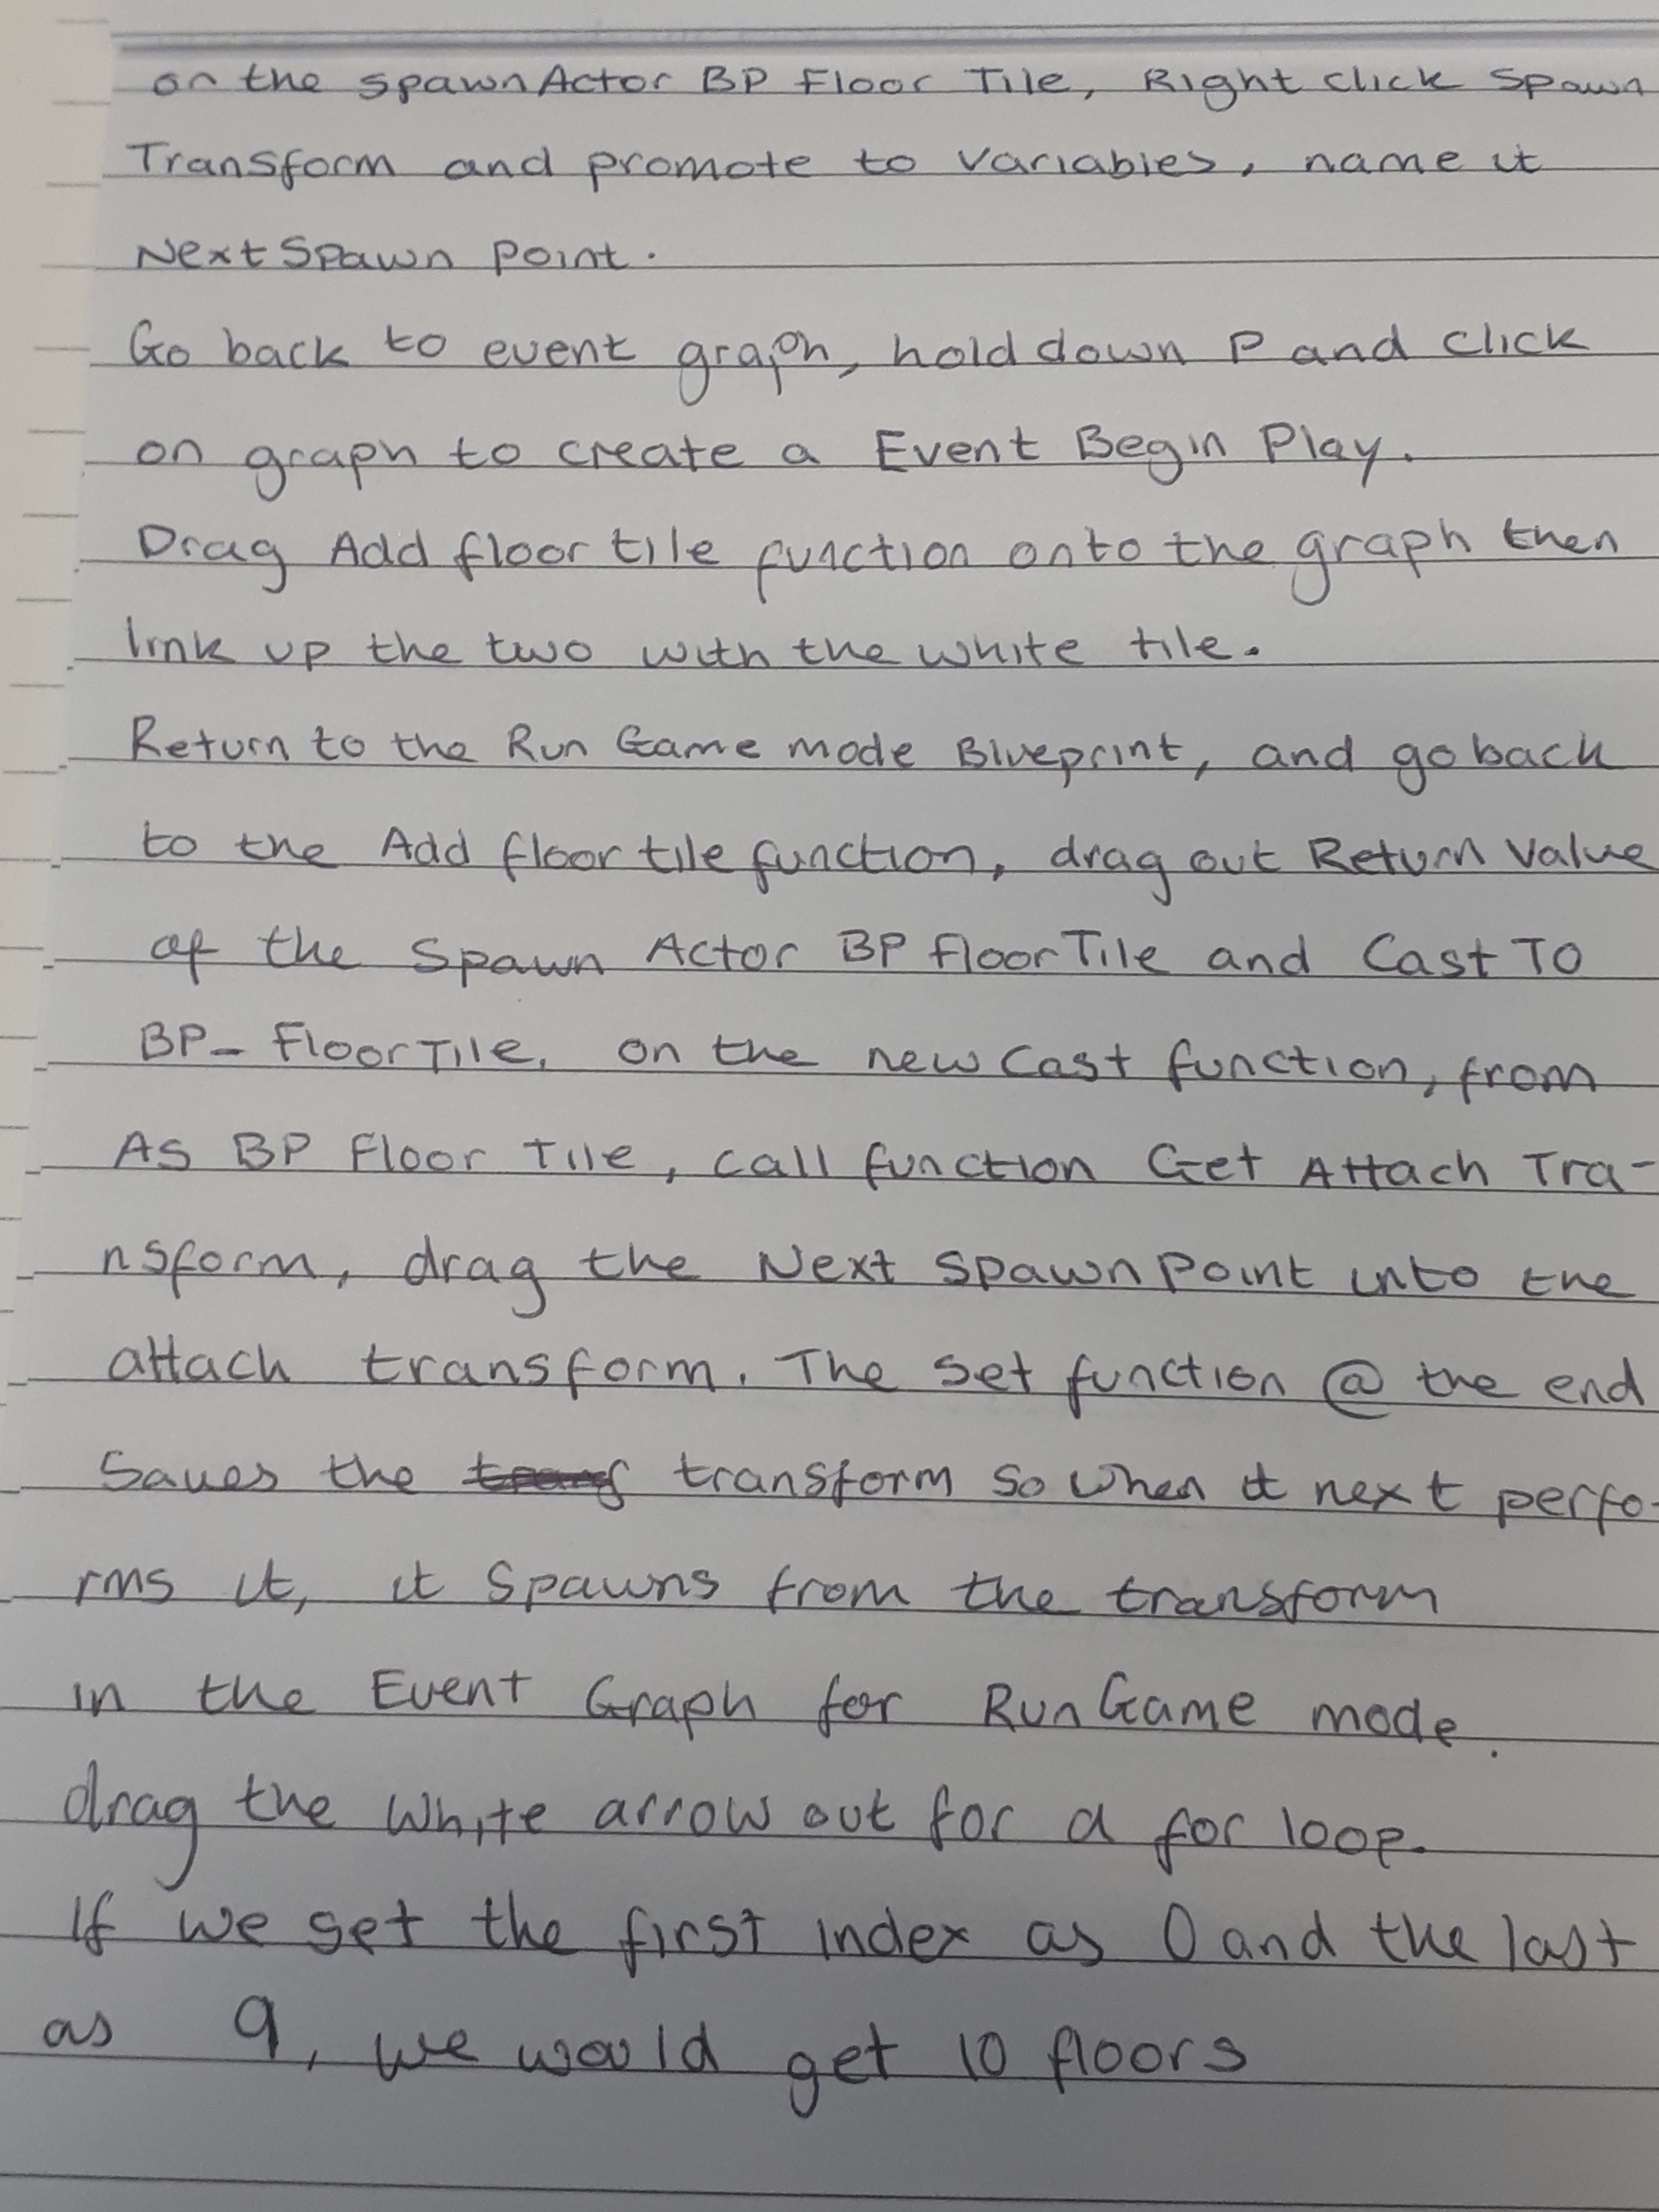 on the spawnActor BP Floor Tile, Right click Spawn
Transform and promote to variables, name it
NextSpawn Point.
Go back to event graph, hold down P and click
on graph to create a Event Begin Play.
Drag Add floor tile function onto the graph then
link up the two with the white tile.
Return to the Run Game mode Blueprint, and go back
to the Add floor tile function, drag out Return Value
of the Spawn Actor BP FloorTile and Cast To
BP_FloorTile. on the new Cast function, from
As BP Floor Tile, call function Get Attach Tra-
nsform, drag the Next Spawn Point into the
attach transform. The Set function @ the end
Saves the transform so when it next perfo-
rms it, it spawns from the transform
in the Event Graph for RunGame mode.
drag the white arrow out for a for loop.
If we set the first index as 0 and the last
as 9, we would get 10 floors